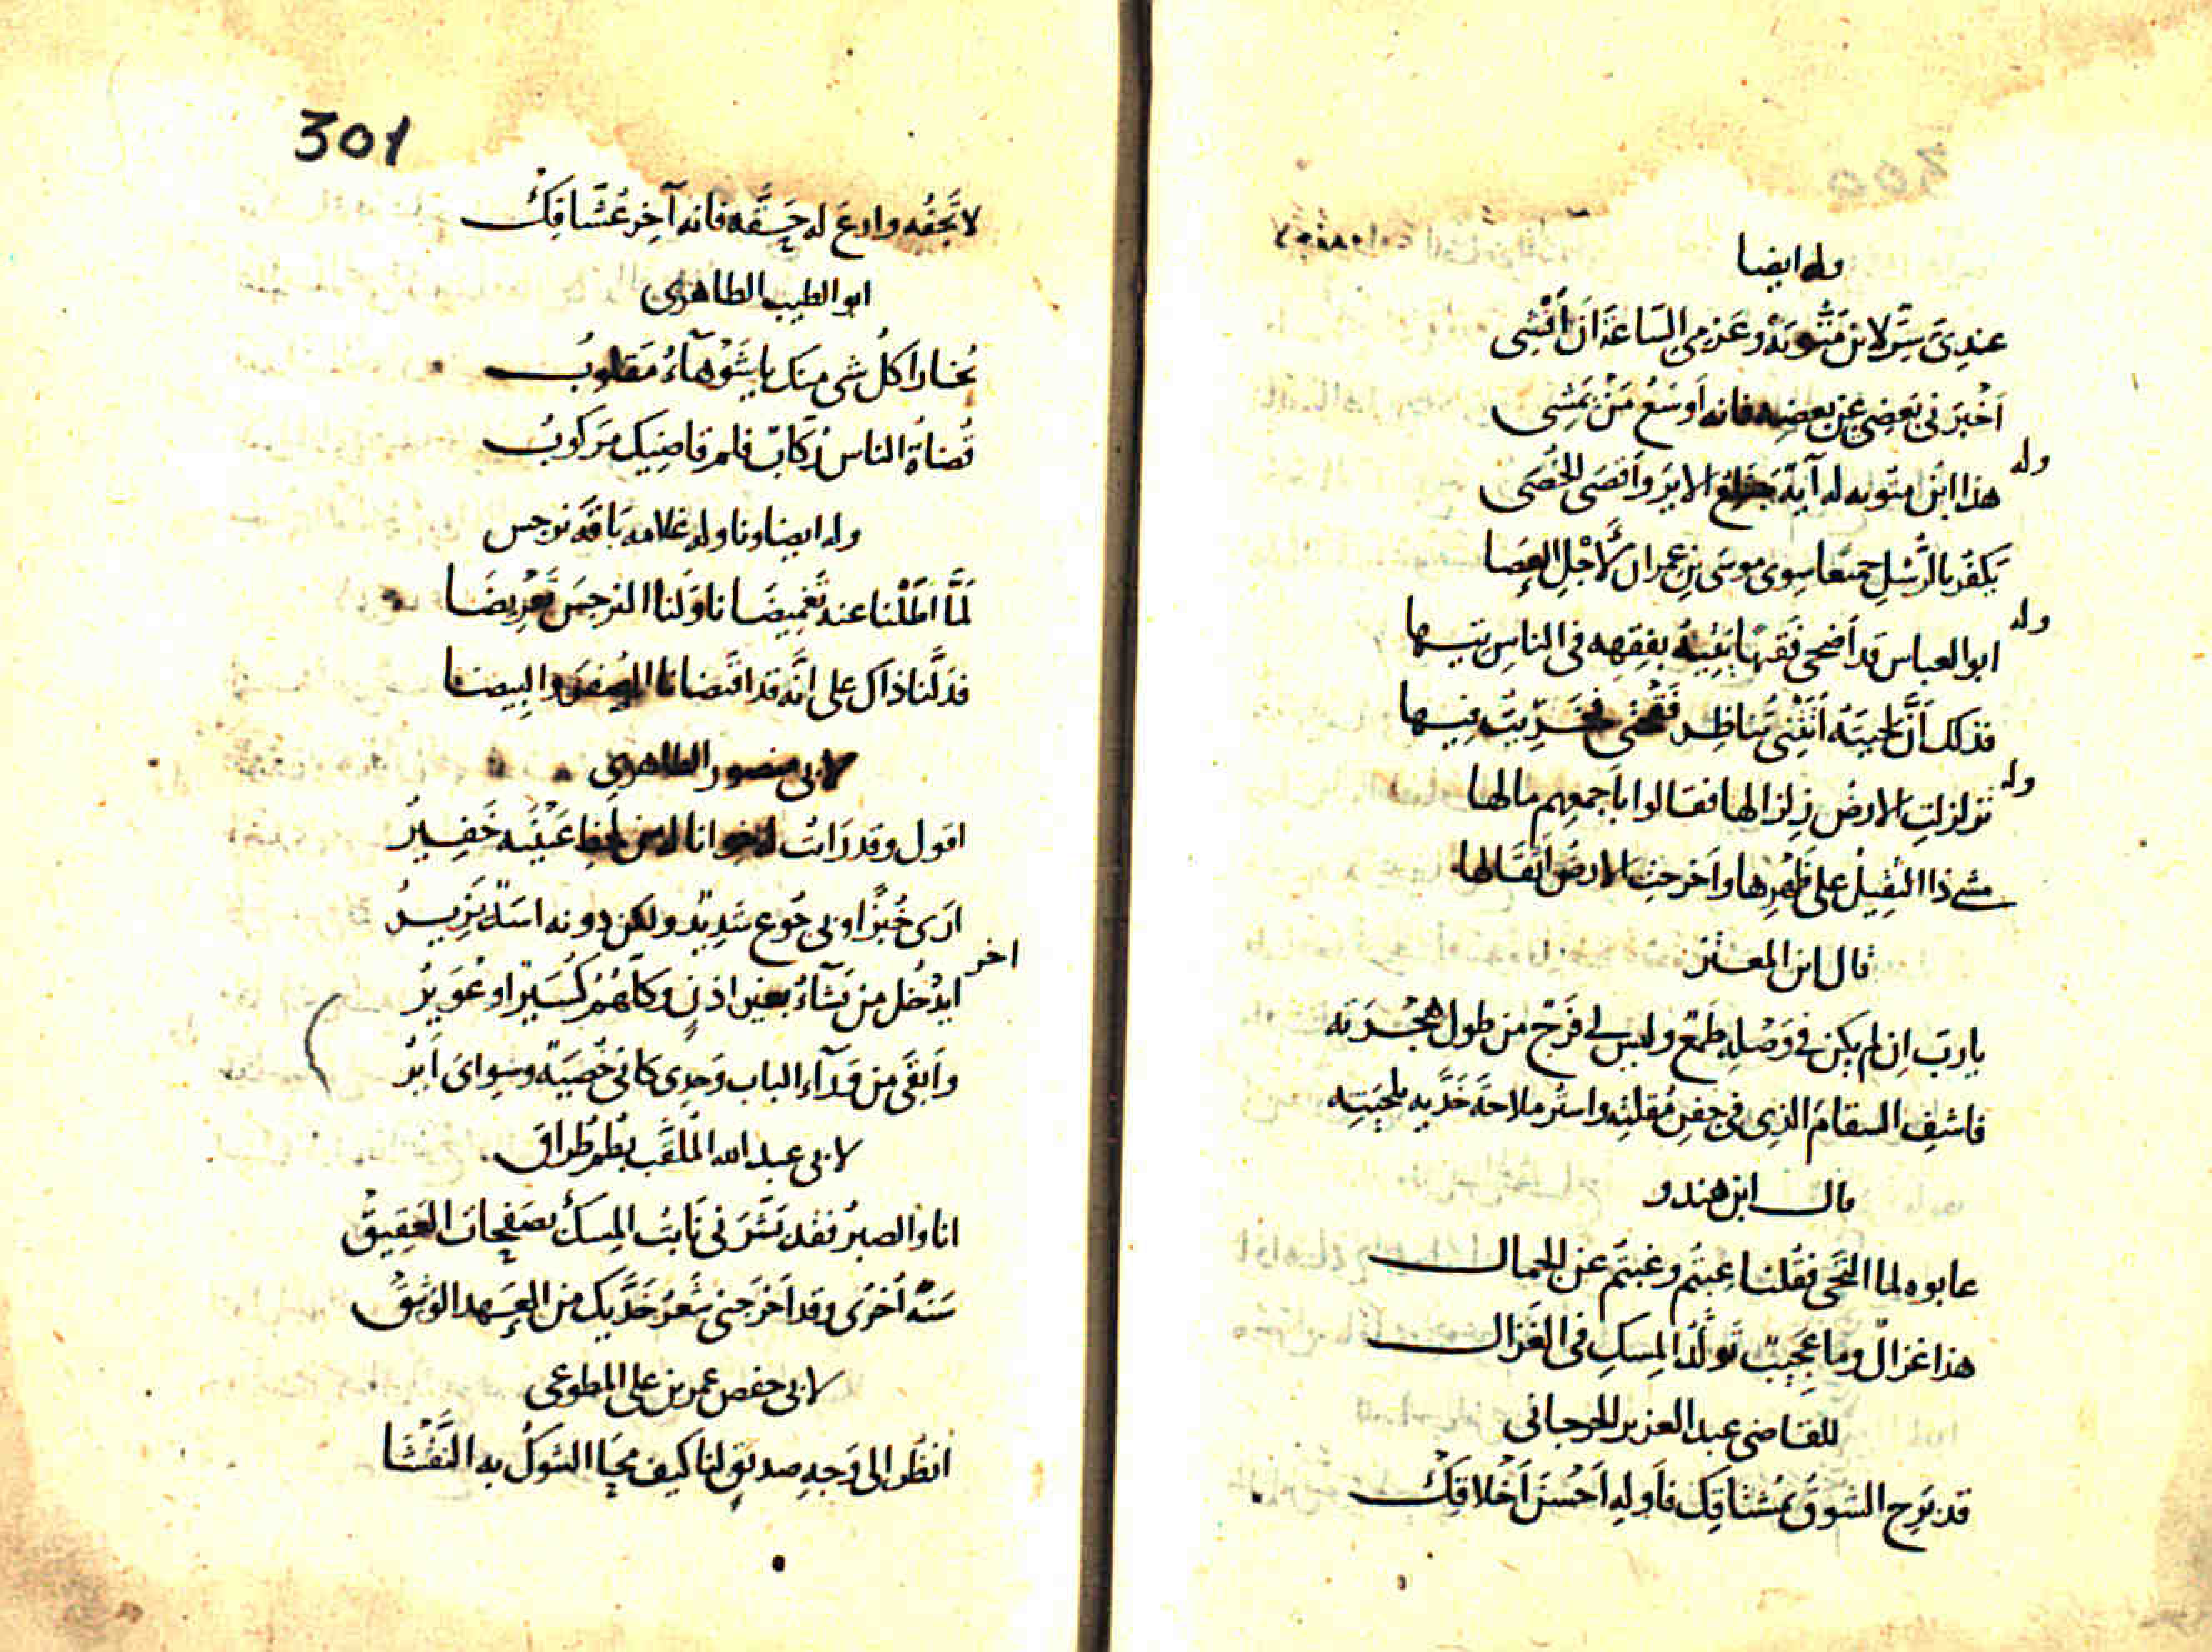 وله ايضا
عندِىَ سِرٌّ لابن مَتُّويَهْ وعَزمىِ السَّاعَةَ اَن اُفْشِى
اَخْبَرَنى بَعضِى عن بَعضِه فانه اَوسَعُ مَنْ يَمشِى
وله
هذا ابْنُ متّويه له آيةٌ الايرَ وَاَقصَى الخُصَى
يَكفُر بالرُّسْلِ جميعًا سِوى موسَى بنِ عِمرانَ لِاَجْلِ العَصَا
وله
ابو العباس قد اَضحى فَقيهًا يَتِيهُ بفِقهِه فى الناسِ تيها
فذلك اَنَّ لحيَتَه اَتَتْنى تُناظِرُ فَقْحَتى فخَرِيتُ فيها
وله
تزلزلتِ الارضُ زِلزالها فقالوا باَجمعِهم مالها
مشى ذا الثقيلُ على ظَهْرِها واَخرجتِ الارضُ اَثقالها
قال ابن المعتز
ياربّ اِن لم يكن فى وَصْلِهِ طَمَعٌ وليس لى فَرَجٌ من طول هَجْرَته
فاشفِ السقامَ الذى فى جفنِ مُقلتِه واستُر ملاحةَ خَدَّيه بلِحيَتِه
قال ابن هندو
عابوه لما التَحَى فقُلنا عِبتُم وغبتُم عن الجمال
هذا غزالٌ وما عَجيبٌ تَولُّدُ المِسكِ فى الغَزال
للقاضى عبد العزيز الجرجانى
قد بَرح الشوقُ بمُشتاقِك فاَولِهِ اَحْسَنَ اَخْلاقِكْ
301
لا تَجْفُه وارعَ له حَقَّه فانه آخِر عُشّاقِكْ
ابو الطيب الطاهرى
بُخارا كلُّ شى منك ياشَوْهآءُ مَقلوبُ
قُضاةُ الناس رُكّابٌ فلم قاضِيكِ مركوبُ
وله ايضا وناوله غلامه بَاقَة نرجس
لَمّا اَطَلْنا عنه تَغمِيضًا ناوَلنا النرجسَ تَعرِيضَا
فدَلَّنا ذاك على اَنَّه قد اقتضانا الصُفرَ والبيضا
لابى منصور الطاهرى
اقول وقد رَاَتْ خَفِيرُ
ارَى خُبزًا وبى جُوع شديدٌ ولكن دونه اسدٌ يَزِيرُ
اخر
ايدْخُل مَن يَشآءُ بغير اذنٍ وكلّهمْ كُسَيْرٌ او عُوَيرٌ
واَبقَى من وَرَآء الباب وَحدِى كاَنّى خُصيَةٌ وسِواىَ اَيرٌ
لابى عبد الله المُلقّب بطُمْطُراق
انا والصبرُ فقد بَشَّرَنى نَابتُ المِسكُ بصَفحات العَقِيقْ
سَنةً اُخرَى وقد اَخرَجنى شَعرُ خدَّيك من العَهد الوثيقْ
لابى حفص عمر بن على المطوعى
انظُر الى وَجهِ صديقٍ لنا كيف مَحَا الشوكُ به النَّقْشَا